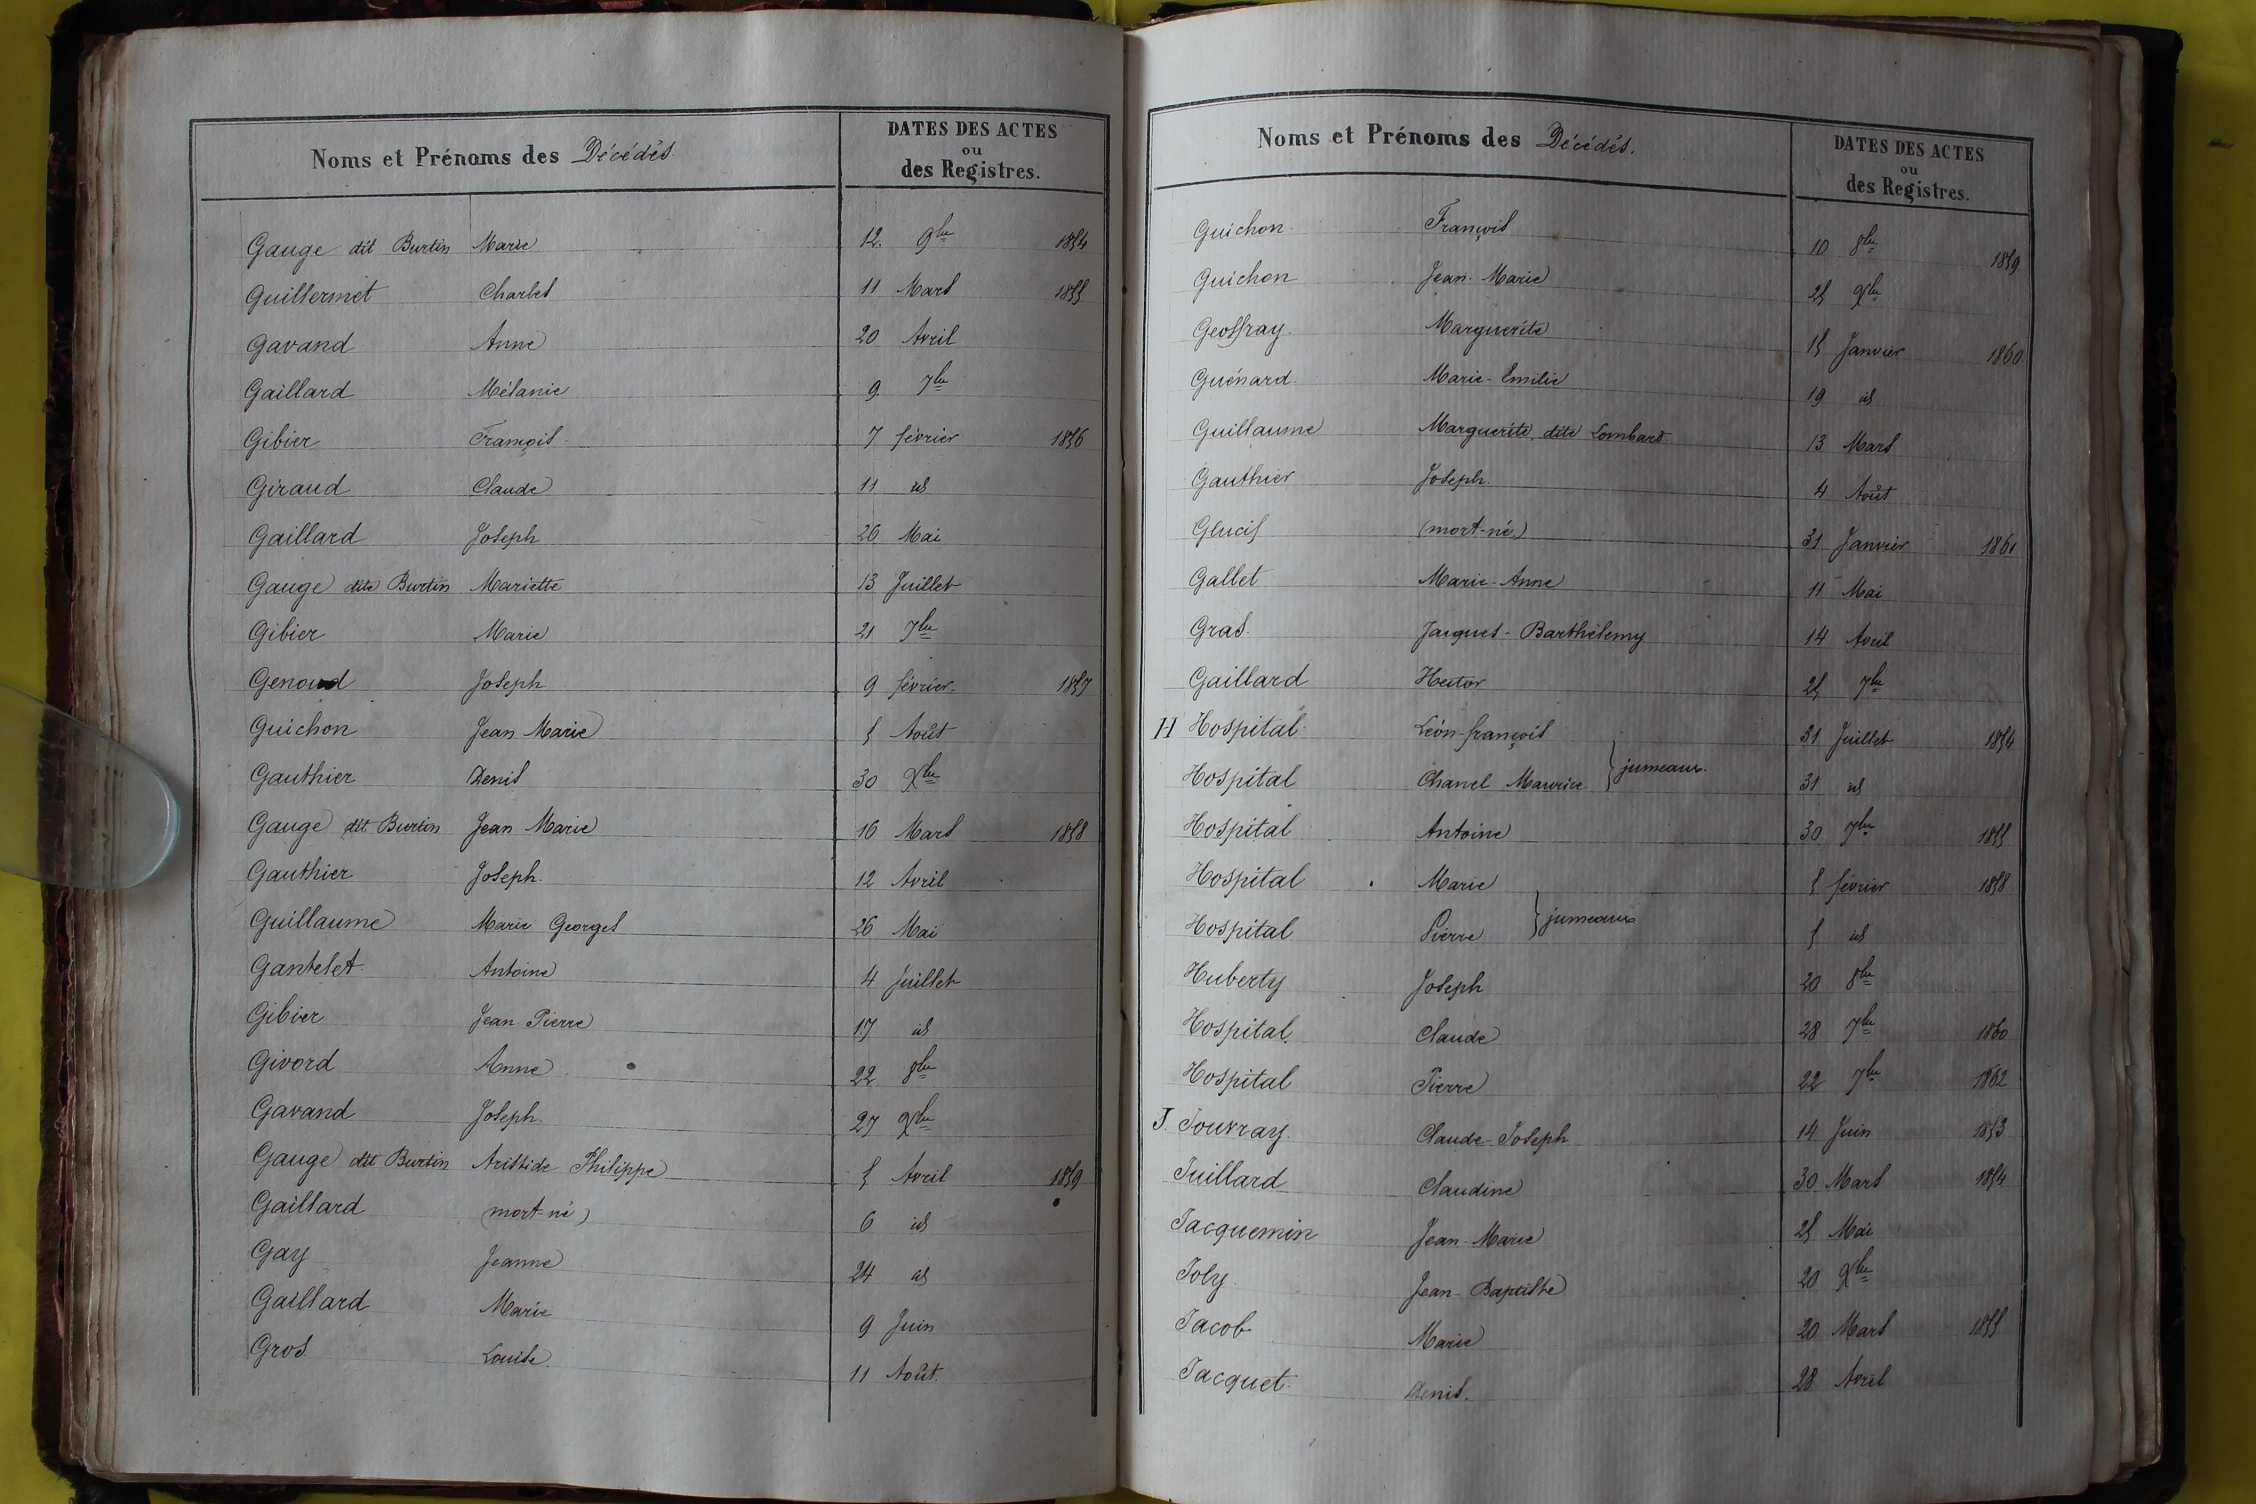 Noms et Prénoms des Décédés.
DATES DES ACTES
ou
des Registres.
Gauge dit Burtin Marie 12. 9bre 1854
Guillermet Charles 11 Mars 1855
Gavand Anne 20 Avril
Gaillard Mélanie 9. 7bre
Gibier François 7 février 1856
Giraud Claude 11 id
Gaillard Joseph 26 Mai
Gauge dite Burtin Mariette 13 Juillet
Gibier Marie 21 7bre
Genoud Joseph 9 février 1857
Guichon Jean Marie 5 Août
Gauthier Denis 30 Xbre
Gauge dit Burtin Jean Marie 16 Mars 1858
Gauthier Joseph 12 Avril
Guillaume Marie Georges 26 Mai
Gantelet Antoine 4 Juillet
Gibier Jean Pierre 17 id
Givord Anne 22 8bre
Gavand Joseph 27 Xbre
Gauge dit Burtin Aristide Philippe 5 Avril 1859
Gaillard (mort-né) 6 id
Gay Jeanne 24 id
Gaillard Marie 9 Juin
Gros Louise 11 Août.
Noms et Prénoms des Décédés.
DATES DES ACTES
ou
des Registres.
Guichon François 10 8bre 1859
Guichon Jean-Marie 25 Xbre
Geoffray Marguerite 15 Janvier 1860
Guénard Marie-Emilie 19 id
Guillaume Marguerite, dite Lombard 13 Mars
Gauthier Joseph 4 Août
(mort-né) 31 Janvier 1861
Gallet Marie-Anne 11 Mai
Gras Jacques-Barthélemy 14 Avril
Gaillard Hector 25 7bre
H Hospital Léon-françois 31 Juillet 1854
} jumeaux.
Hospital Chanel Maurice 31 id
Hospital Antoine 30 7bre 1855
Hospital Marie 5 février 1858
} jumeaux
Hospital Pierre 5 id
Huberty Joseph 20 8bre
Hospital Claude 28 7bre 1860
Hospital Pierre 22 7bre 1862
J. Jouvray Claude-Joseph 14 Juin 1853
Juillard Claudine 30 Mars 1854
Jacquemin Jean-Marie 25 Mai
Joly Jean-Baptiste 20 Xbre
Jacob Marie 20 Mars 1855
Jacquet Denis. 28 Avril